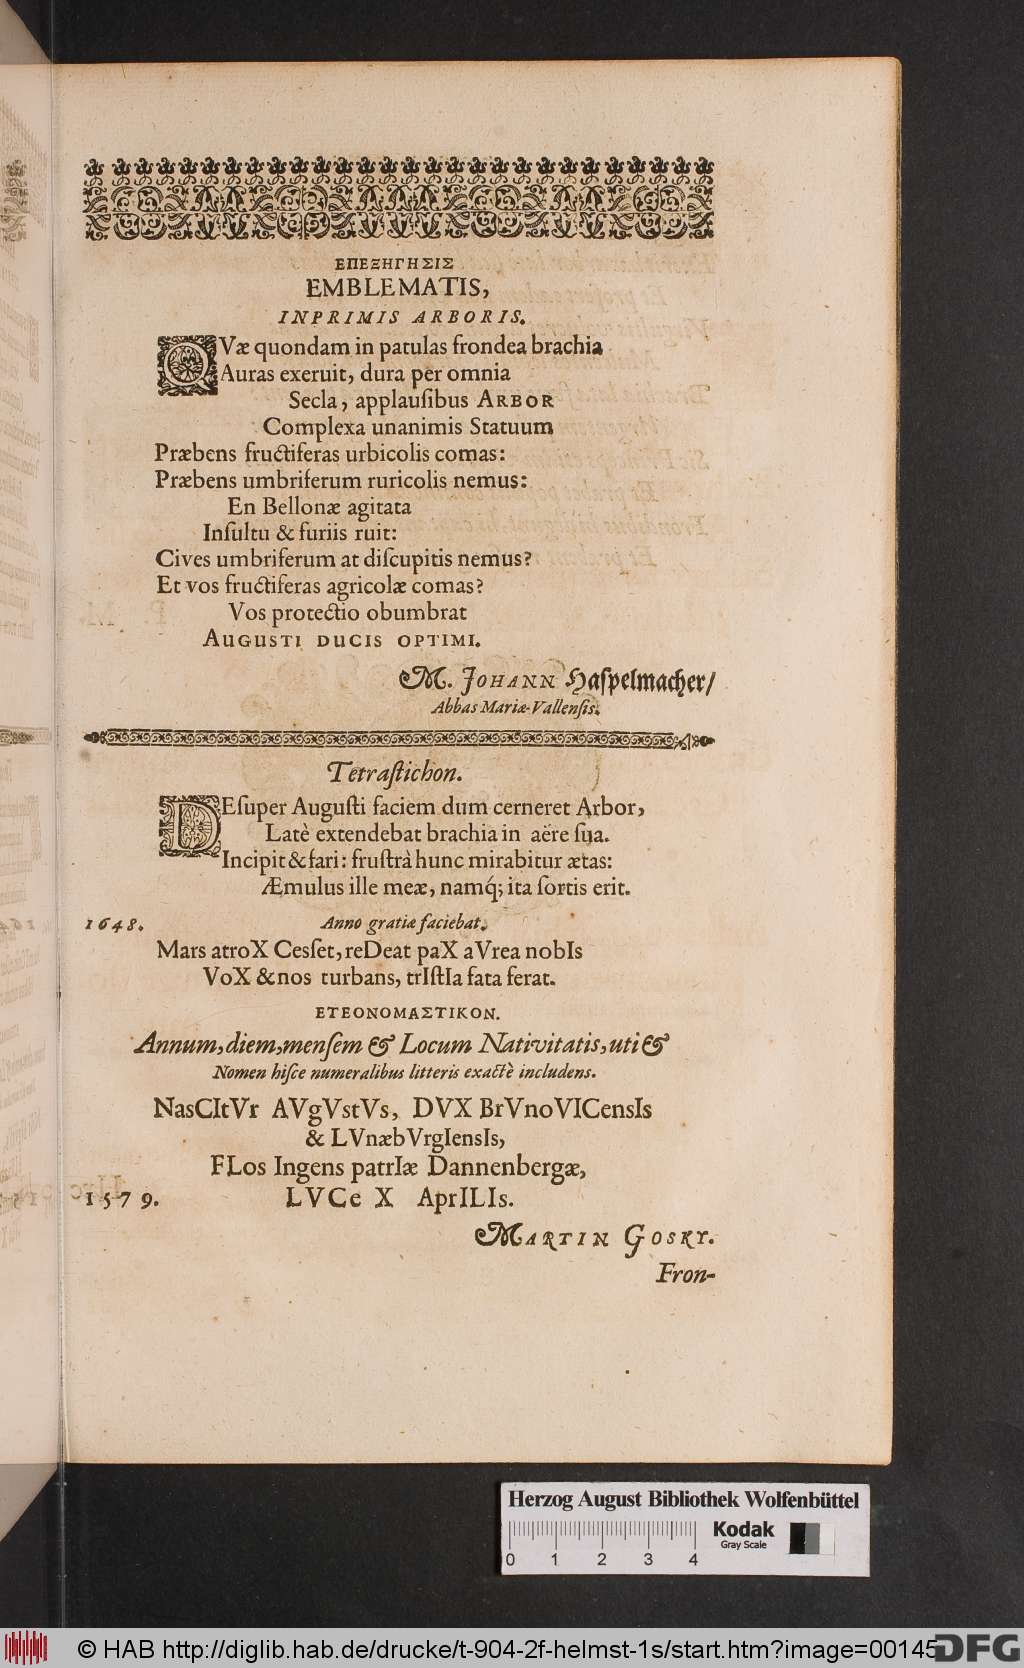 ΕΠΕΞΗΓΗΣΙΣ
EMBLEMATIS,
INPRIMIS ARBORIS.
QVæ quondam in patulas frondea brachia
Auras exeruit, dura per omnia
Secla, applauſibus ARBOR
Complexa unanimis Statuum
Præbens fructiferas urbicolis comas:
Præbens umbriferum ruricolis nemus:
En Bellonæ agitata
Inſultu & furiis ruit:
Cives umbriferum at diſcupitis nemus?
Et vos fructiferas agricolæ comas?
Vos protectio obumbrat
AUGUSTI DUCIS OPTIMI.
M. JOHANN Haſpelmacher/
Abbas Mariæ-Vallenſis.
Tetraſtichon.
DEſuper Auguſti faciem dum cerneret Arbor,
Latè extendebat brachia in aëre ſua.
Incipit & fari: fruſtrà hunc mirabitur ætas:
Æmulus ille meæ, namq́; ita ſortis erit.
1648. Anno gratiæ faciebat.
Mars atroX Cesſet, reDeat paX aVrea nobIs
VoX & nos turbans, trIſtIa fata ferat.
ΕΤΕΟΝΟΜΑΣΤΙΚΟΝ.
Annum, diem, menſem & Locum Nativitatis, uti &
Nomen hiſce numeralibus litteris exactè includens.
NasCItVr AVgVstVs, DVX BrVnoVICensIs
& LVnæbVrgIensIs,
FLos Ingens patrIæ Dannenbergæ,
1579. LVCe X AprILIs.
MARTIN GOSKY.
Fron-
Herzog August Bibliothek Wolfenbüttel
Kodak
Gray Scale
0 1 2 3 4
© HAB http://diglib.hab.de/drucke/t-904-2f-helmst-1s/start.htm?image=00145
DFG